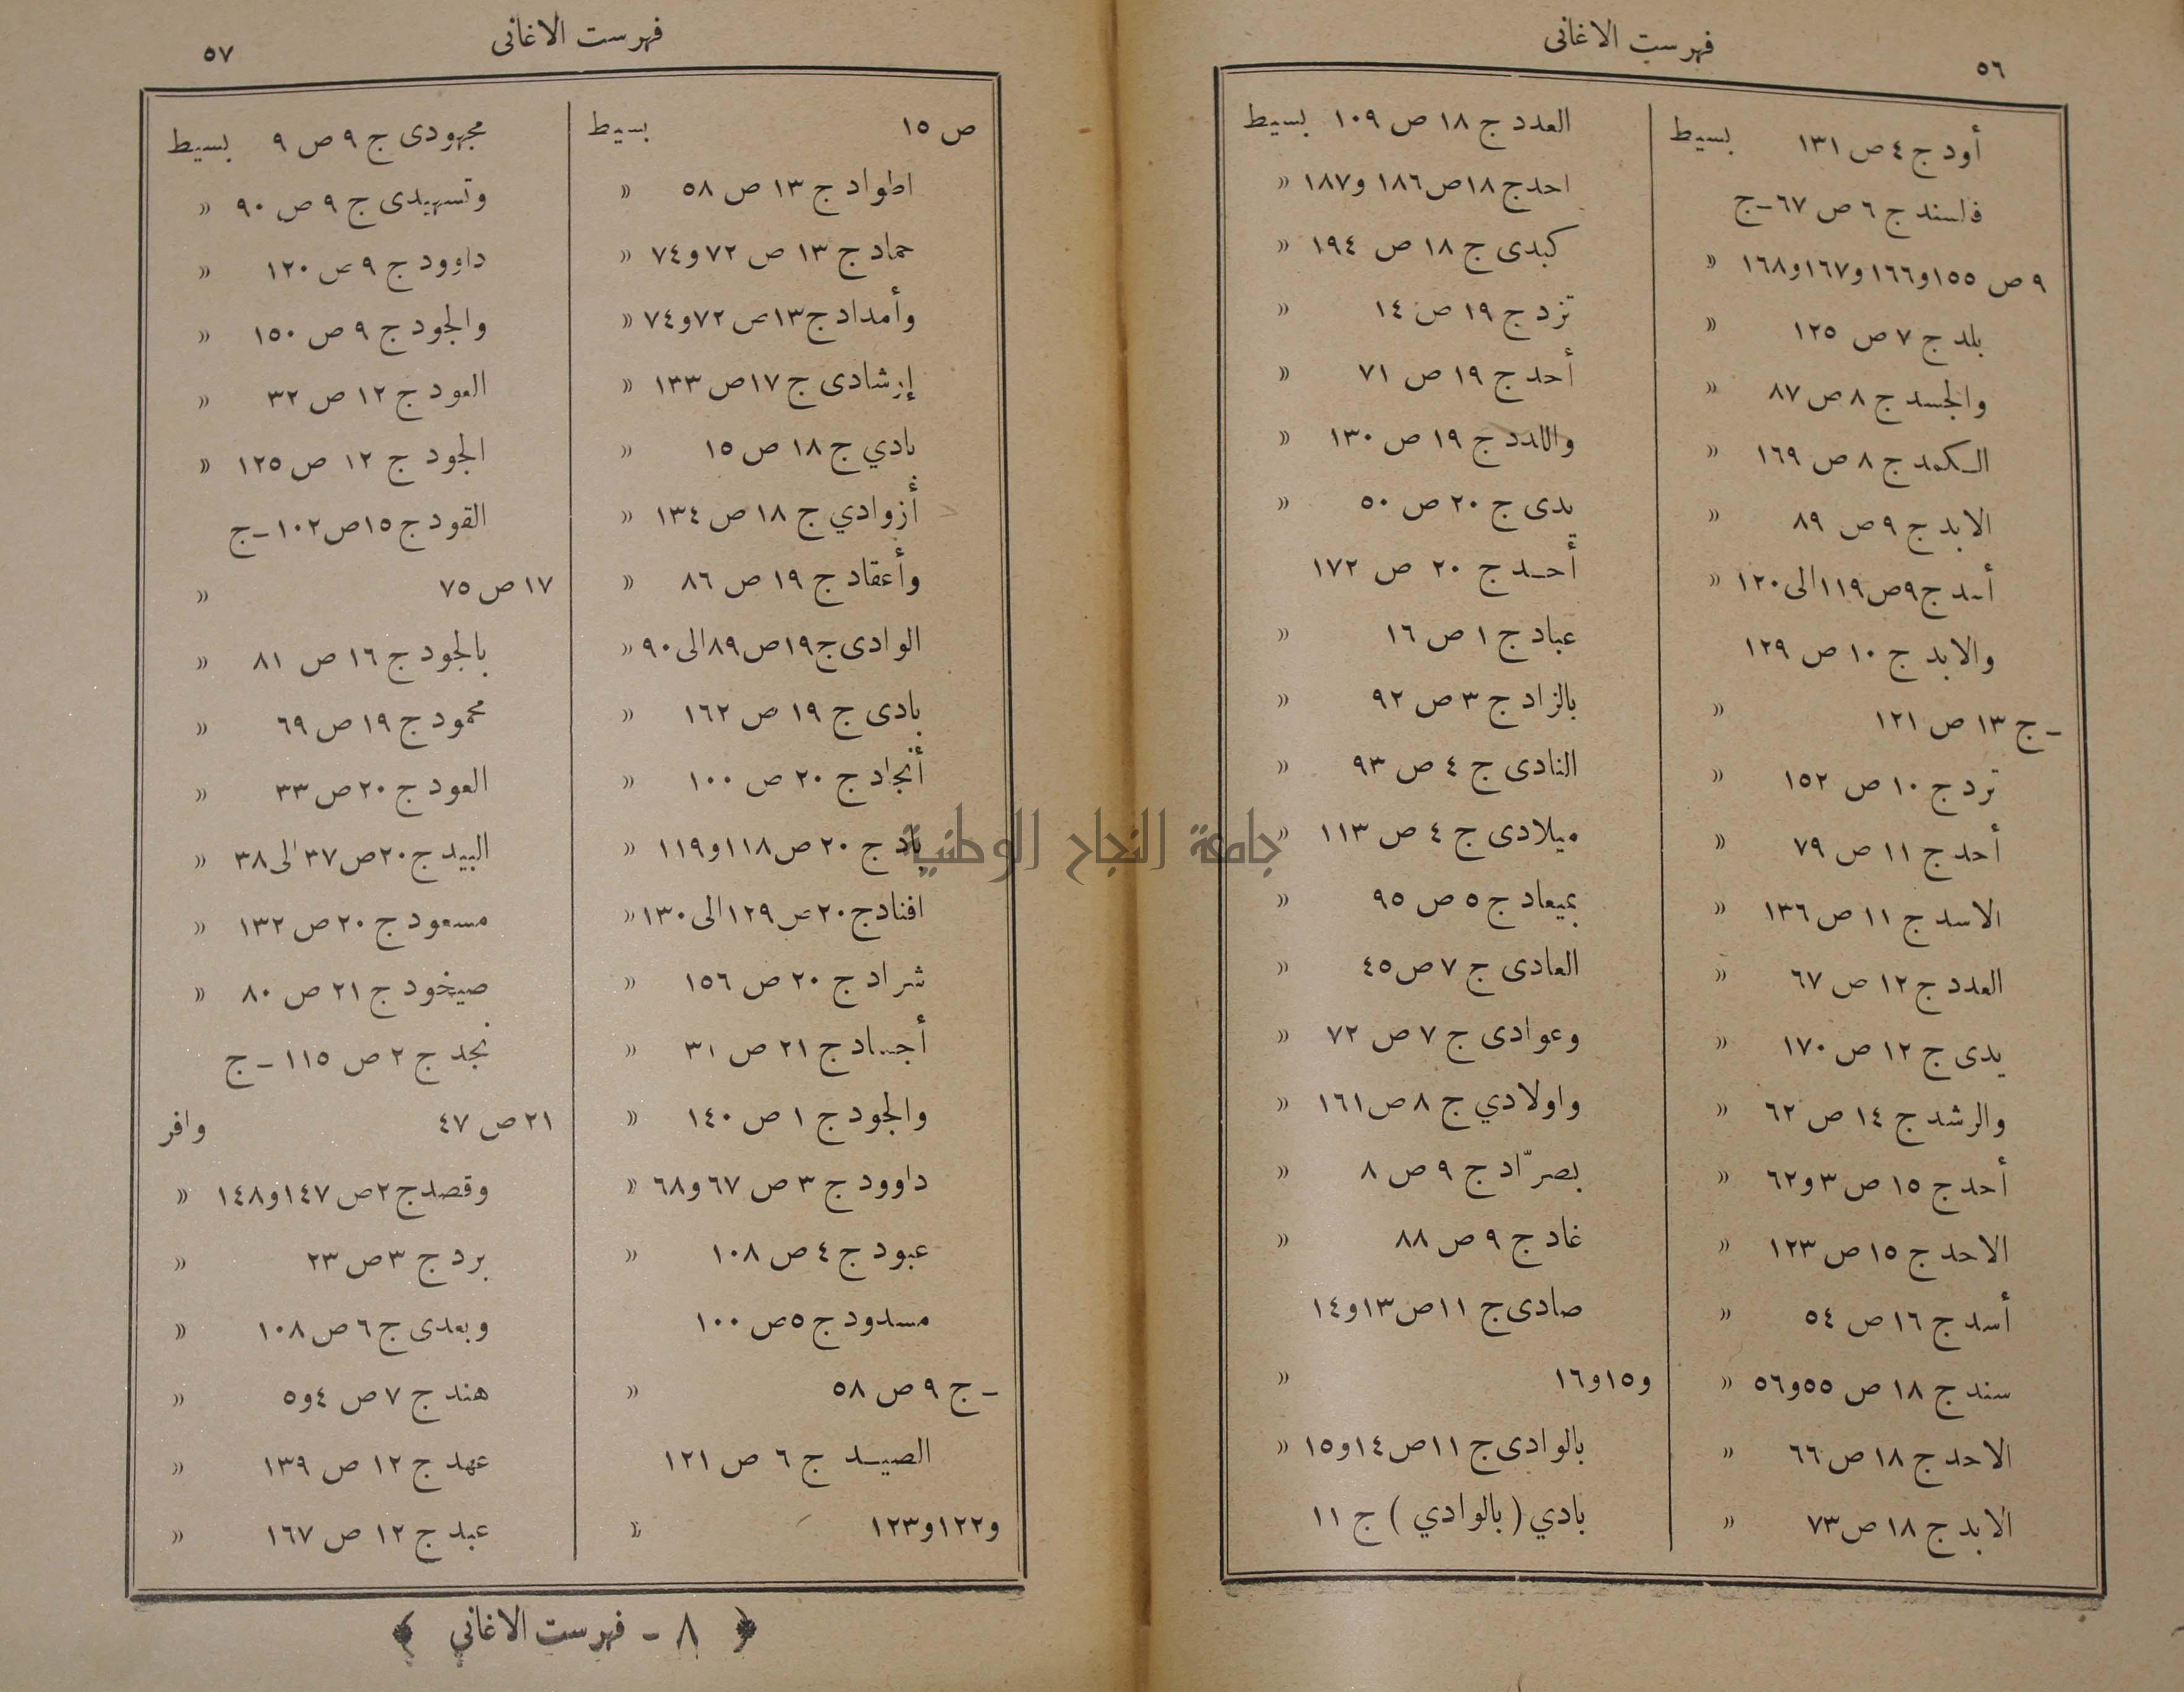 فهرست الاغانى
٥٦
أود ج ٤ ص ١٣١ بسيط
فاسند ج ٦ ص ٦٧ ـ ج
٩ ص ١٥٥ و١٦٦ و١٦٧ و١٦٨ »
بلد ج ٧ ص ١٢٥ »
والجسد ج ٨ ص ٨٧ »
الـكمد ج ٨ ص ١٦٩ »
الابد ج ٩ ص ٨٩ »
ج ٩ ص ١١٩ الى ١٢٠ »
والابد ج ١٠ ص ١٢٩
ـ ج ١٣ ص ١٢١ »
ترد ج ١٠ ص ١٥٢ »
أحد ج ١١ ص ٧٩ »
الاسد ج ١١ ص ١٣٦ »
العدد ج ١٢ ص ٦٧ »
يدى ج ١٢ ص ١٧٠ »
والرشد ج ١٤ ص ٦٢ »
أحد ج ١٥ ص ٣ و٦٢ »
الاحد ج ١٥ ص ١٢٣ »
أسد ج ١٦ ص ٥٤ »
سند ج ١٨ ص ٥٥ و٥٦ »
الاحد ج ١٨ ص ٦٦ »
الابد ج ١٨ ص ٧٣ »
العدد ج ١٨ ص ١٠٩ بسيط
احد ج ١٨ ص ١٨٦ و١٨٧ »
كبدى ج ١٨ ص ١٩٤ »
تزد ج ١٩ ص ١٤ »
أحد ج ١٩ ص ٧١ »
واللدد ج ١٩ ص ١٣٠ »
يدى ج ٢٠ ص ٥٠ »
أحـد ج ٢٠ ص ١٧٢
عباد ج ١ ص ١٦ »
بالزاد ج ٣ ص ٩٢ »
النادى ج ٤ ص ٩٣ »
ميلادى ج ٤ ص ١١٣ »
بميعاد ج ٥ ص ٩٥ »
العادى ج ٧ ص ٤٥ »
وعوادى ج ٧ ص ٧٢ »
واولادي ج ٨ ص ١٦١ »
بصرّاد ج ٩ ص ٨ »
غاد ج ٩ ص ٨٨ »
صادى ج ١١ ص ١٣ و١٤
و١٥ و١٦ »
بالوادى ج ١١ ص ١٤ و١٥ »
بادي ( بالوادي ) ج ١١
فهرست الاغانى
٥٧
ص ١٥ بسيط
اطواد ج ١٣ ص ٥٨ »
حماد ج ١٣ ص ٧٢ و٧٤ »
وأمداد ج ١٣ ص ٧٢ و٧٤ »
إرشادى ج ١٧ ص ١٣٣ »
بادي ج ١٨ ص ١٥ »
أزوادي ج ١٨ ص ١٣٤ »
وأعقاد ج ١٩ ص ٨٦ »
الوادى ج ١٩ ص ٨٩ الى ٩٠ »
بادى ج ١٩ ص ١٦٢ »
أنجاد ج ٢٠ ص ١٠٠ »
باد ج ٢٠ ص ١١٨ و١١٩ »
افناد ج ٢٠ ص ١٢٩ الى ١٣٠ »
شراد ج ٢٠ ص ١٥٦ »
أجساد ج ٢١ ص ٣١ »
والجود ج ١ ص ١٤٠ »
داوود ج ٣ ص ٦٧ و٦٨ »
عبود ج ٤ ص ١٠٨ »
مسدود ج ٥ ص ١٠٠
ـ ج ٩ ص ٥٨ »
الصيـد ج ٦ ص ١٢١
و١٢٢ و١٢٣ »
مجهودى ج ٩ ص ٩ بسيط
وتسهيدى ج ٩ ص ٩٠ »
داوود ج ٩ ص ١٢٠ »
والجود ج ٩ ص ١٥٠ »
العود ج ١٢ ص ٣٢ »
الجود ج ١٢ ص ١٢٥ »
القود ج ١٥ ص ١٠٢ ـ ج
١٧ ص ٧٥ »
بالجود ج ١٦ ص ٨١ »
محمود ج ١٩ ص ٦٩ »
العود ج ٢٠ ص ٣٣ »
البيد ج ٢٠ ص ٣٧ الى ٣٨ »
مسعود ج ٢٠ ص ١٣٢ »
صيخود ج ٢١ ص ٨٠ »
نجد ج ٢ ص ١١٥ ـ ج
٢١ ص ٤٧ وافر
وقصد ج ٢ ص ١٤٧ و١٤٨ »
برد ج ٣ ص ٢٣ »
وبعدى ج ٦ ص ١٠٨ »
هند ج ٧ ص ٤ و٥ »
عهد ج ١٢ ص ١٣٩ »
عبد ج ١٢ ص ١٦٧ »
﴿ ٨ ـ فهرست الاغاني ﴾
جامعة النجاح الوطنية